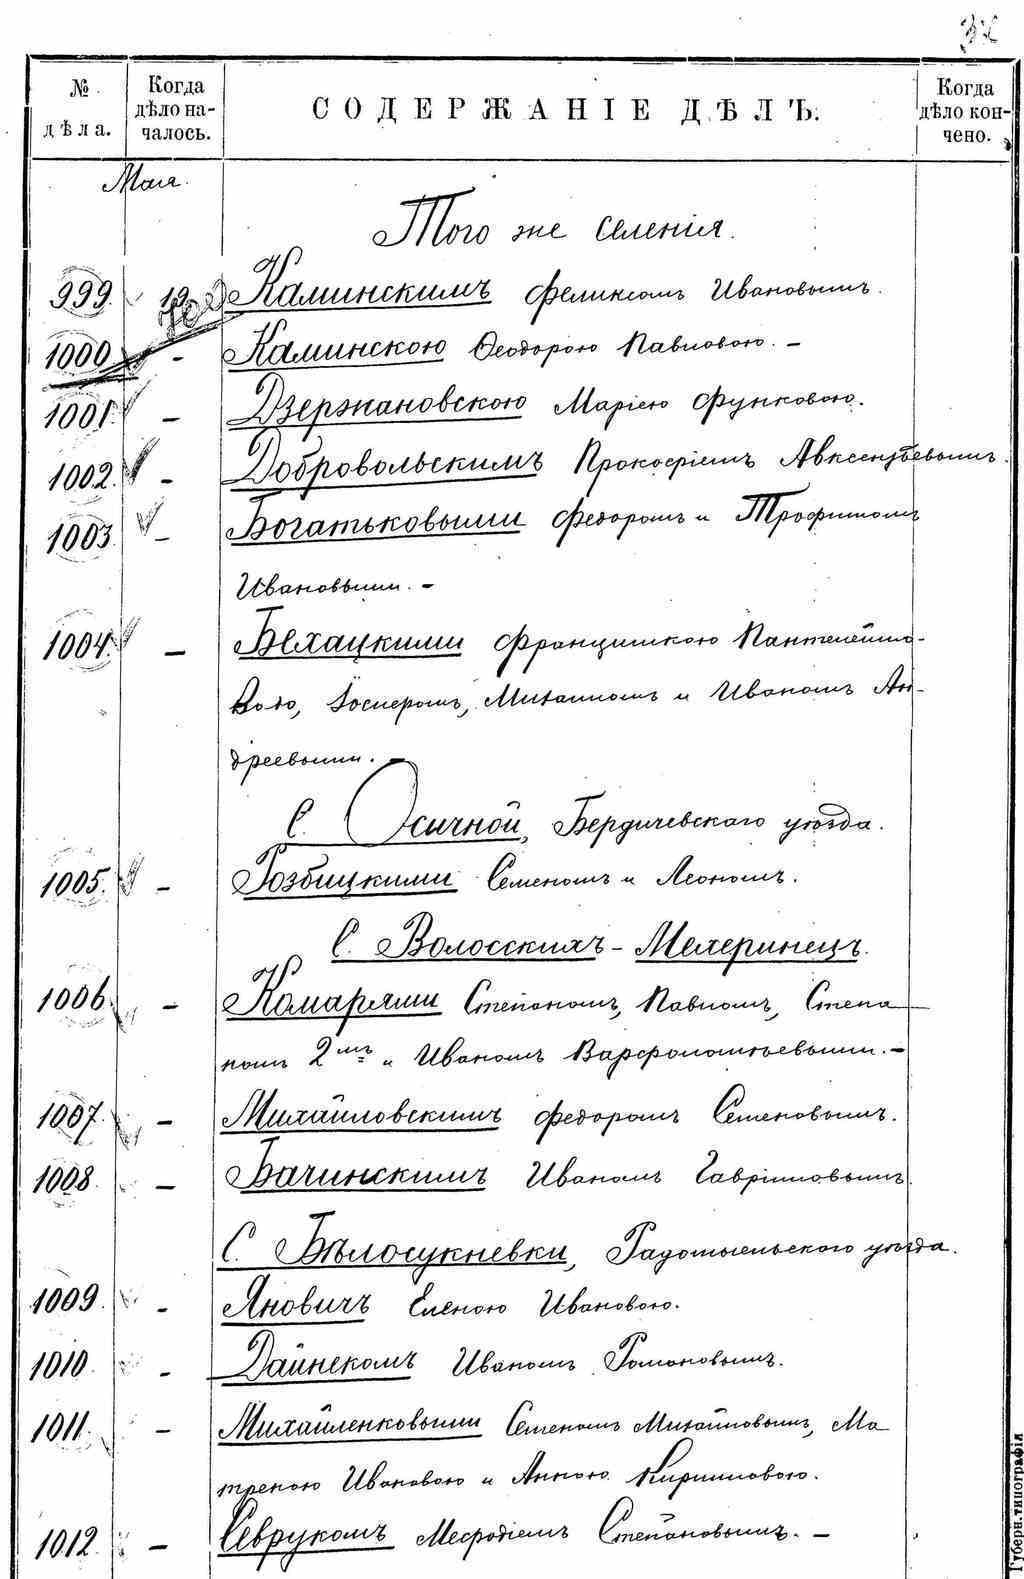 № дѣла.
Когда дѣло началось.
СОДЕРЖАНІЕ ДѢЛЪ.
Когда дѣло кончено.
Мая.
Того же селенія.
999. 19 Каминскимъ Феликсомъ Ивановымъ.
1000 - Каминскою Ѳеодорою Павловою. -
1001. - Дзержановскою Маріею Функовою.
1002. - Добровольскимъ Прокофіемъ Авксентьевымъ.
1003. - Богатьковыми Федоромъ и Трофимомъ
Ивановыми. -
1004. - Бехацкими Францишкою Пантелеймо-
вою, Іосифомъ, Михаиломъ и Иваномъ Ан-
дреевыми. -
С. Осичной, Бердичевскаго уѣзда.
1005. - Розбицкими Семеномъ и Леономъ.
С. Волосскихъ-Мехеринецъ.
1006 - Комарями Степаномъ, Павломъ, Степа
номъ 2мъ и Иваномъ Варфоломѣевыми. -
1007. - Михайловскимъ Федоромъ Семеновымъ.
1008. - Бачинскимъ Иваномъ Гавріиловымъ
С. Бѣлосукневки, Радомысльскаго уѣзда.
1009. - Яновичъ Еленою Ивановою.
1010. - Дайнекомъ Иваномъ Романовымъ.
1011. - Михайленковыми Семеномъ Михайловымъ, Ма
треною Ивановою и Анною Кирилловою.
1012. - Севрукомъ Мефодіемъ Степановымъ. -
Губерн. типографія